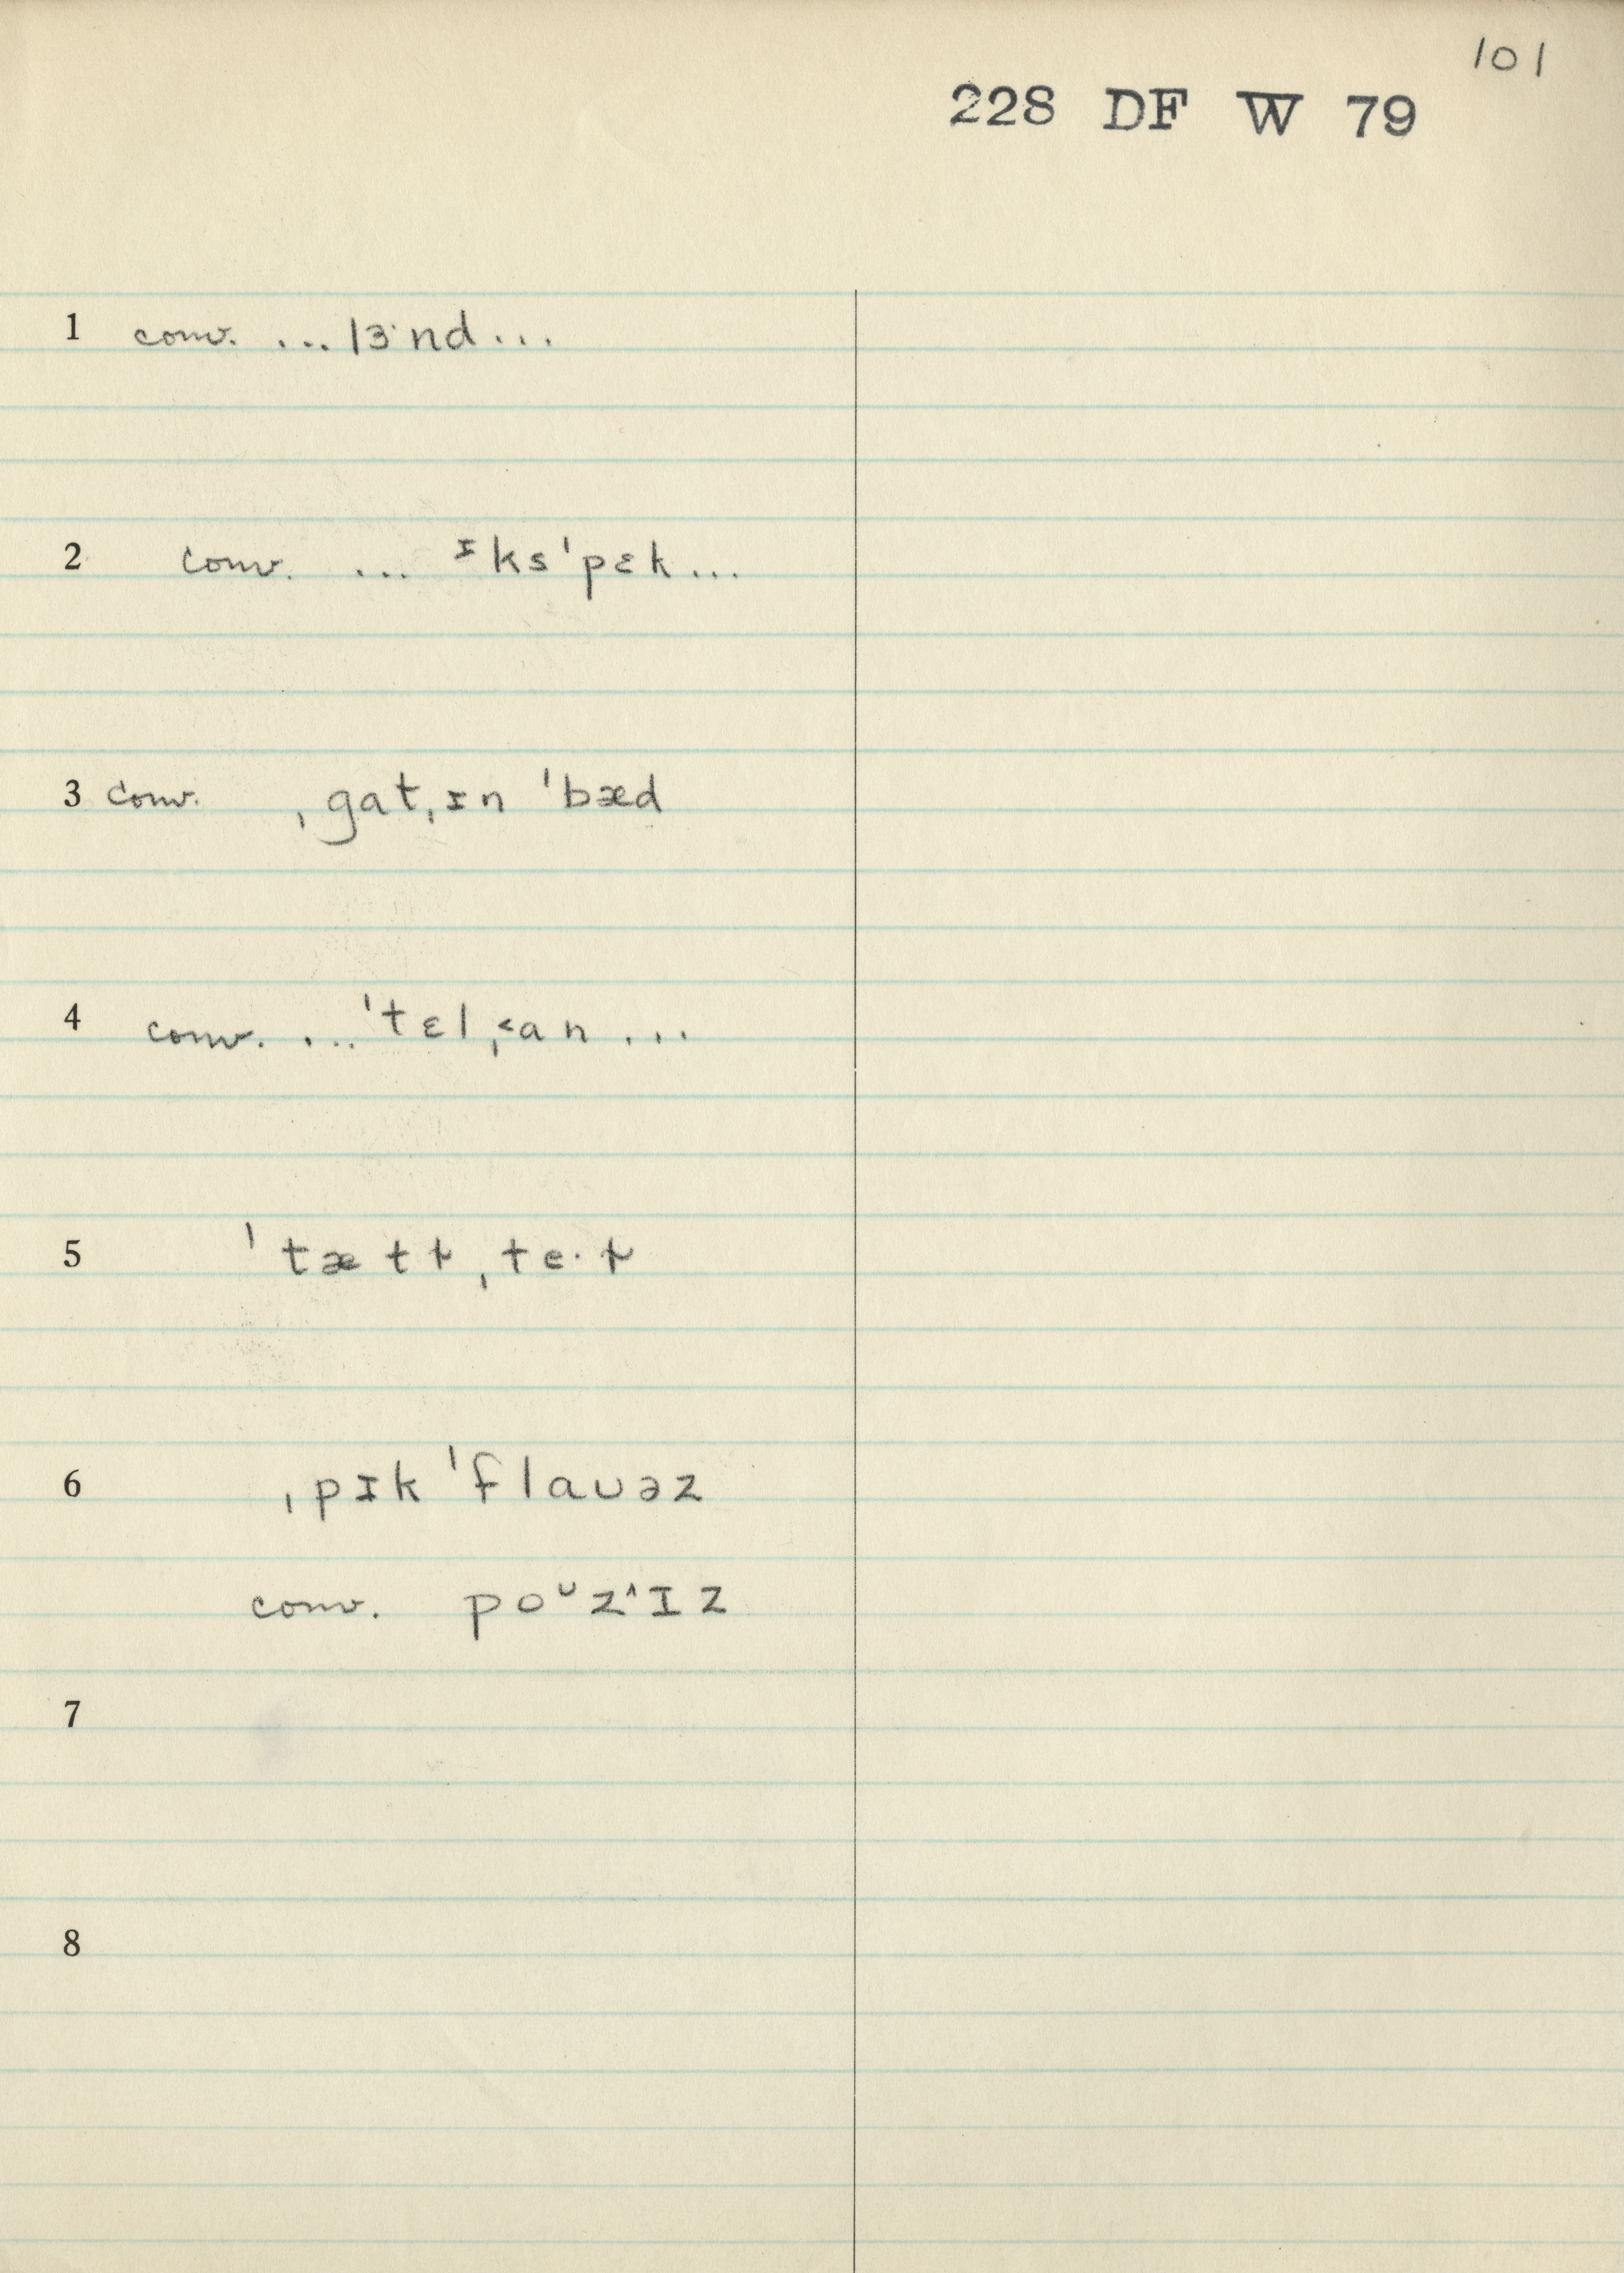 101
228 DF W 79
1 conv. ...lɜ˙nd...
2 conv. ... ᶦks'pɛk...
3 conv. ˌgatˌɪn 'bæd
4 conv. ...'tɛlˌ˂an...
5
6 ˌpɪk 'flaʊəz
conv. poᶷz^ɪz
7
8